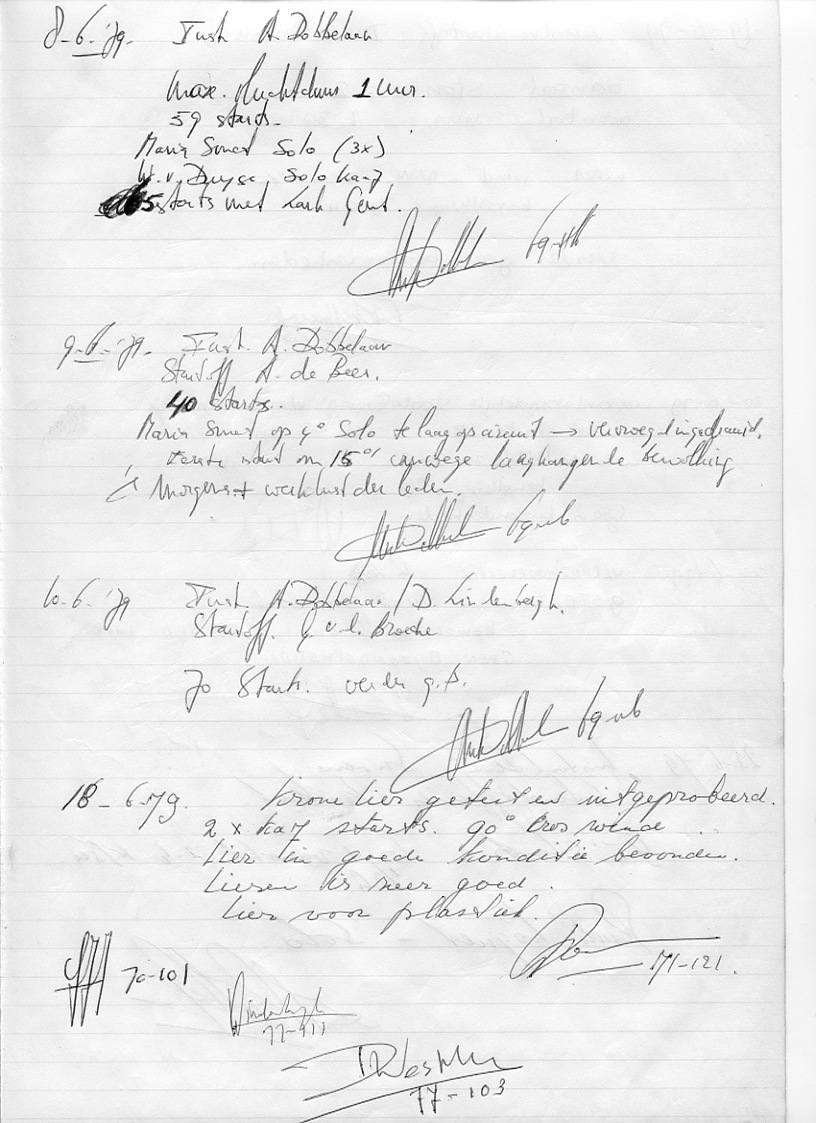 8-6-'79. Instr. A. Dobbelaar
Max. vluchtduur 1 uur.
59 starts.
Maria Smet Solo (3x)
W. v. Duyse Solo Ka 7
5 starts met Gent.
9-6-'79. Instr. A. Dobbelaar
Startoff A. de Beer.
40 starts.
Maria Smet op 4e Solo te laag op circuit →
Eerste start om vanwege laaghangende bewolking
Morgens + werklust der leden.
10-6-'79 Instr. A. Dobbelaar / D. Lindenbergh.
Startoff. v.d. Broecke
70 Starts. verder g.b.
18-6-79. lier getest en uitgeprobeerd.
2 x Ka 7 starts. 90° cros winde
Lier in goede konditie bevonden.
Lieren is zeer goed.
Lier voor plastiek.
71-121.
70-101
77-111
77-103